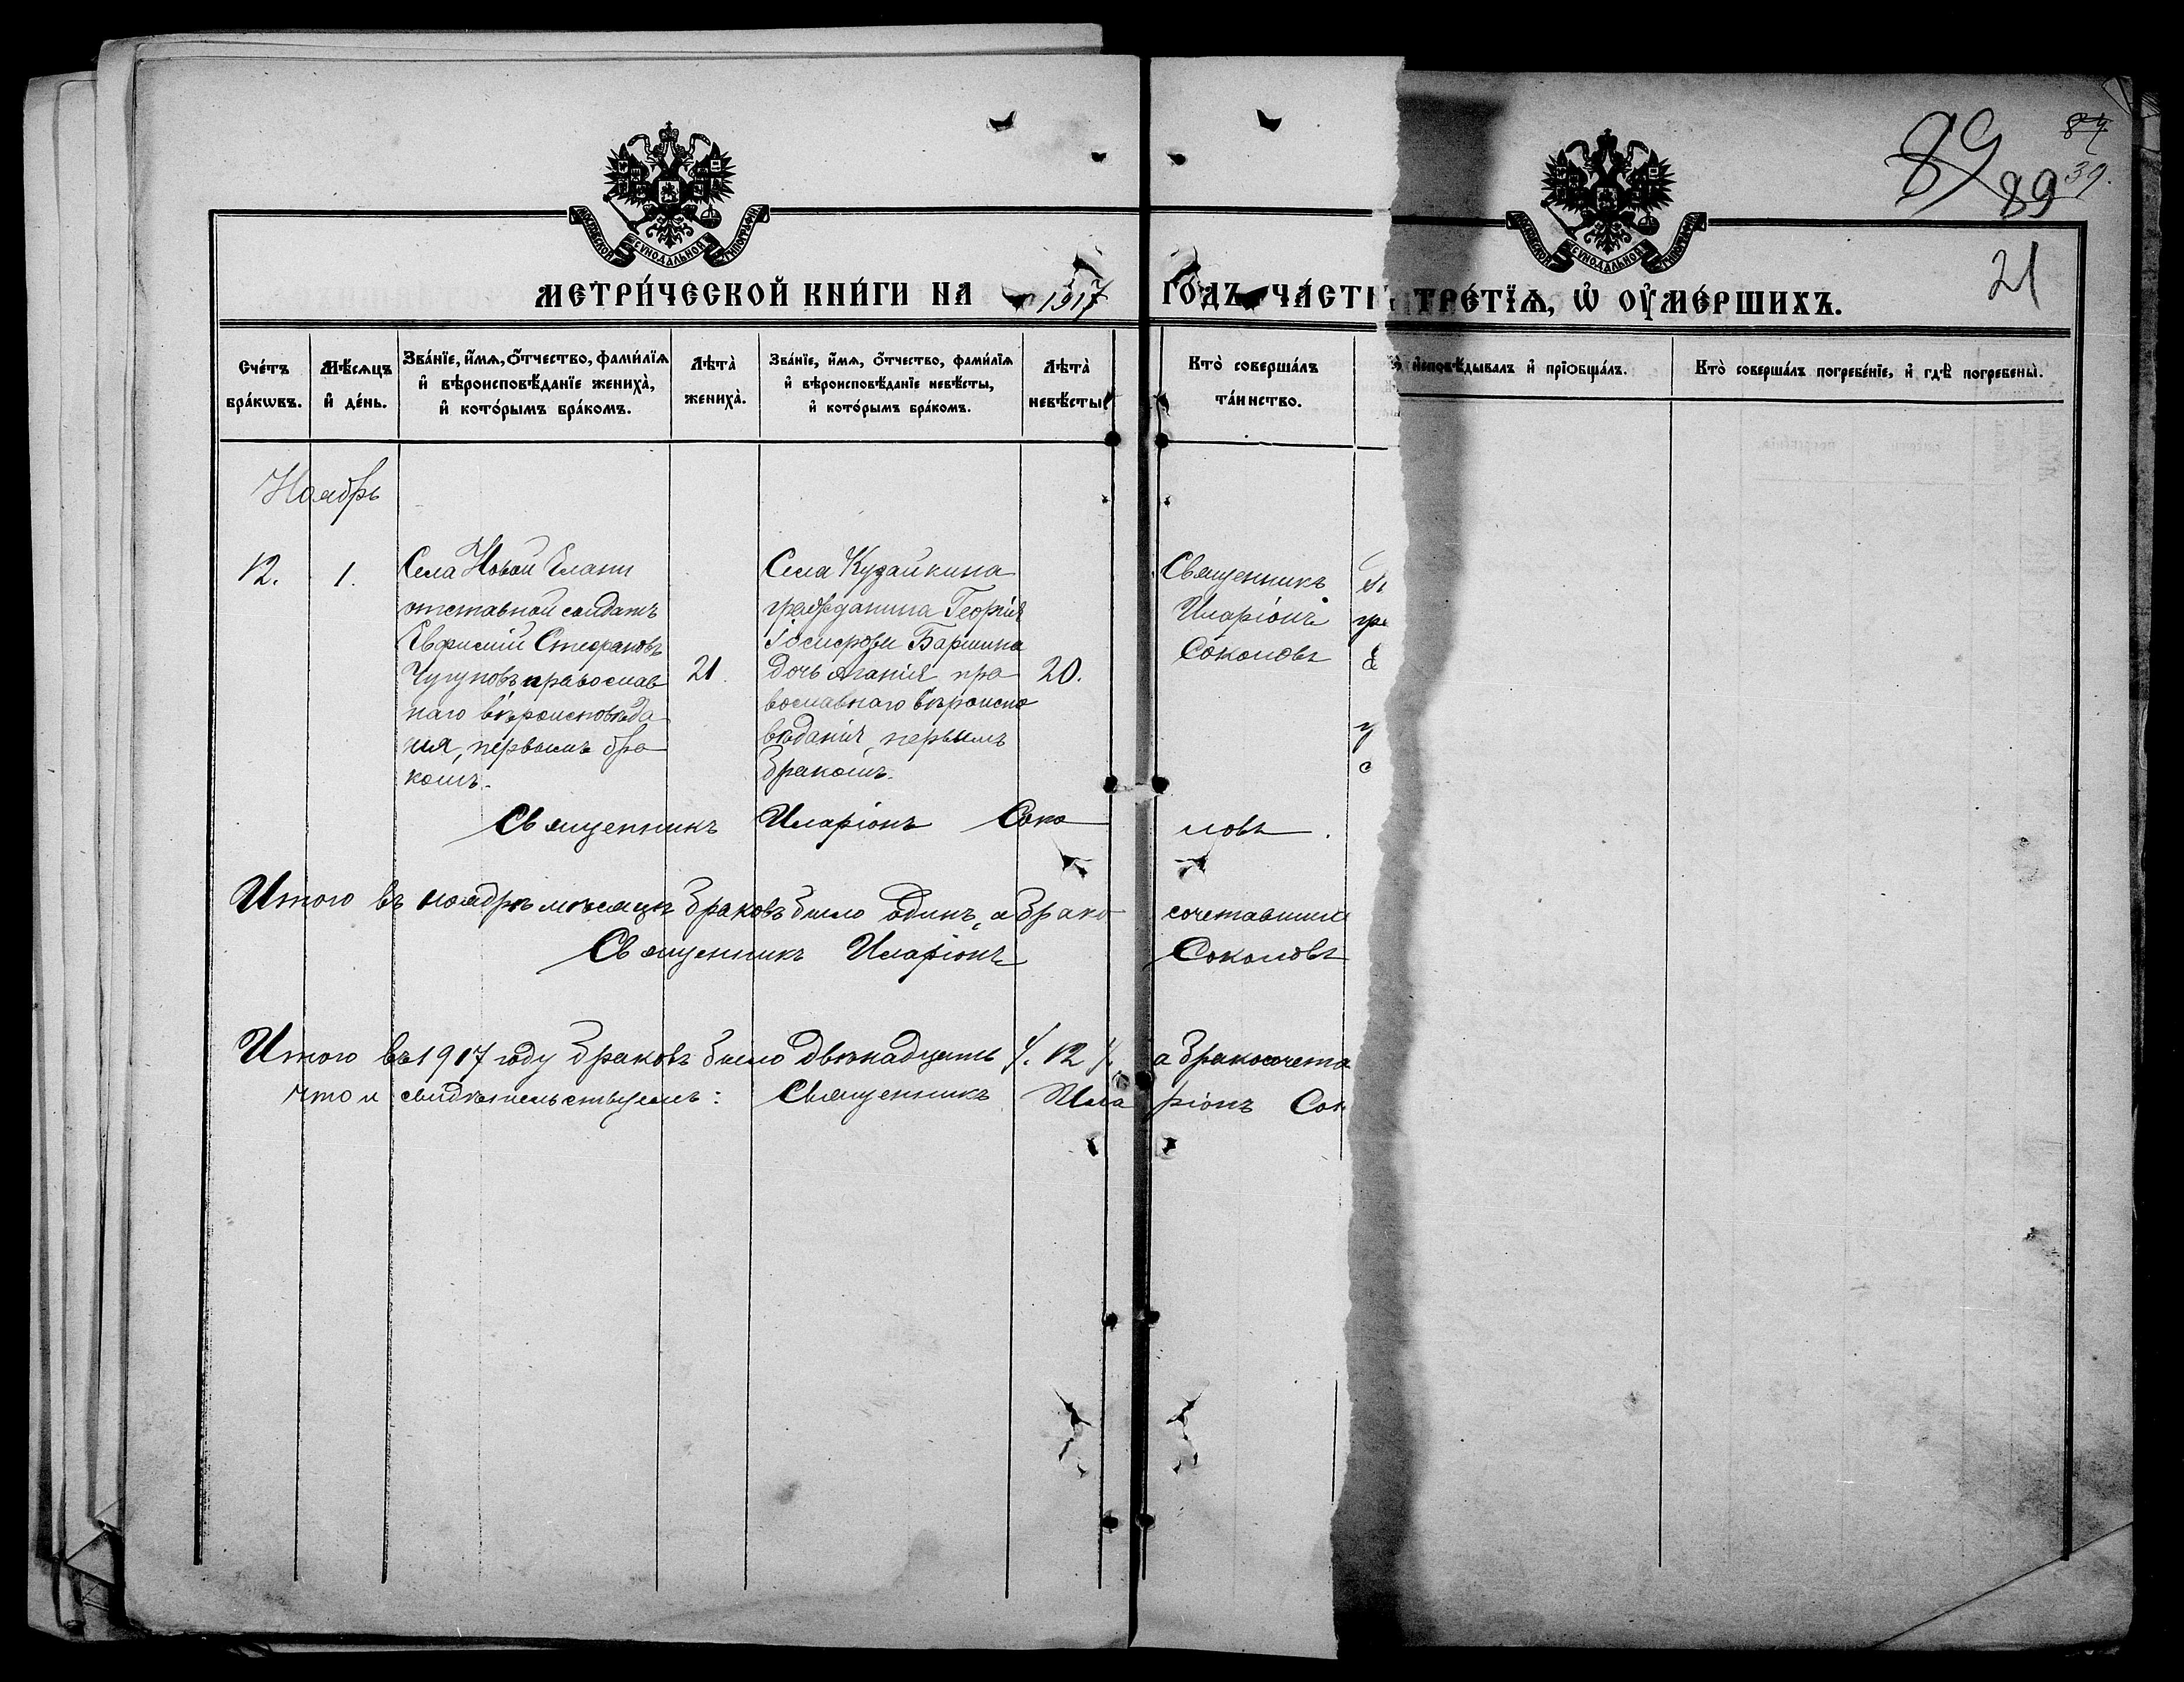 89
89
87
39.
21
МОСКОВСКОЙ СѴНОДАЛЬНОЙ ТИПОГРАФІИ
МОСКОВСКОЙ СѴНОДАЛЬНОЙ ТИПОГРАФІИ
МЕТРИ́ЧЕСКОЙ КНИ́ГИ НА 1917 ГО́ДЪ, ЧА́СТЬ ТРЕ́ТЇѦ, Ѡ҆ ОУ҆МЕ́РШИХЪ.
Сче́тъ бра́кѡвъ.
Мѣ́сѧцъ и҆ де́нь.
Зва́нїе, и҆́мѧ, ѻ҆́тчество, фами́лїѧ
и҆ вѣроисповѣ́данїе жениха̀,
и҆ кото́рымъ бра́комъ.
Лѣта̀ жениха̀.
Зва́нїе, и҆́мѧ, ѻ҆́тчество, фами́лїѧ
и҆ вѣроисповѣ́данїе невѣ́сты,
и҆ кото́рымъ бра́комъ.
Лѣта̀ невѣ́сты.
Кто̀ соверша́лъ
та́инство.
и҆сповѣ́дывалъ и҆ прїѻбща́лъ.
Кто̀ соверша́лъ погребе́нїе, и҆ гдѣ̀ погребены̀.
Ноябрь
12. 1.
Села Новой Елани
отставной солдатъ
Евфимій Стефановъ
Чугуновъ, православ
наго вѣроисповѣда
нія, первымъ бра
комъ.
21.
Села Кузайкина
гражданина Георгія
Іосифови Баршина
дочь Агапія пра
вославнаго вѣроиспо
вѣданія, первымъ
бракомъ.
20.
Священникъ
Иларіонъ
Соколовъ
Священникъ Иларіонъ Соко ловъ.
Итого въ ноябрѣ мѣсяцѣ браковъ было одинъ, а брако сочетавши
Священникъ Иларіонъ Соколовъ
Итого въ 1917 году браковъ было двѣнадцать /. 12 /. а бракосочета
что и свидѣтельствуемъ: Священникъ Ила ріонъ Сок